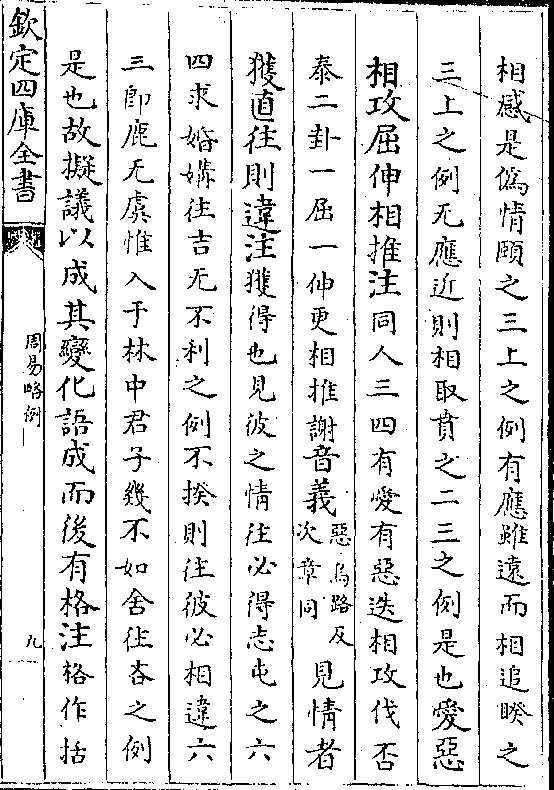 相感是偽情頤之三上之例有應雖遠而相追睽之
三上之例无應近則相取賁之二三之例是也愛惡
相攻屈伸相推注同人三四有愛有惡迭相攻伐否
泰二卦一屈一伸更相推謝音義惡烏路反次章同見情者
獲直往則違注獲得也見彼之情往必得志屯之六
四求婚媾往吉无不利之例不揆則往彼必相違六
三即鹿无虞惟入于林中君子幾不如舍往吝之例
是也故擬議以成其變化語成而後有格注格作括
欽定四庫全書
周易略例
九